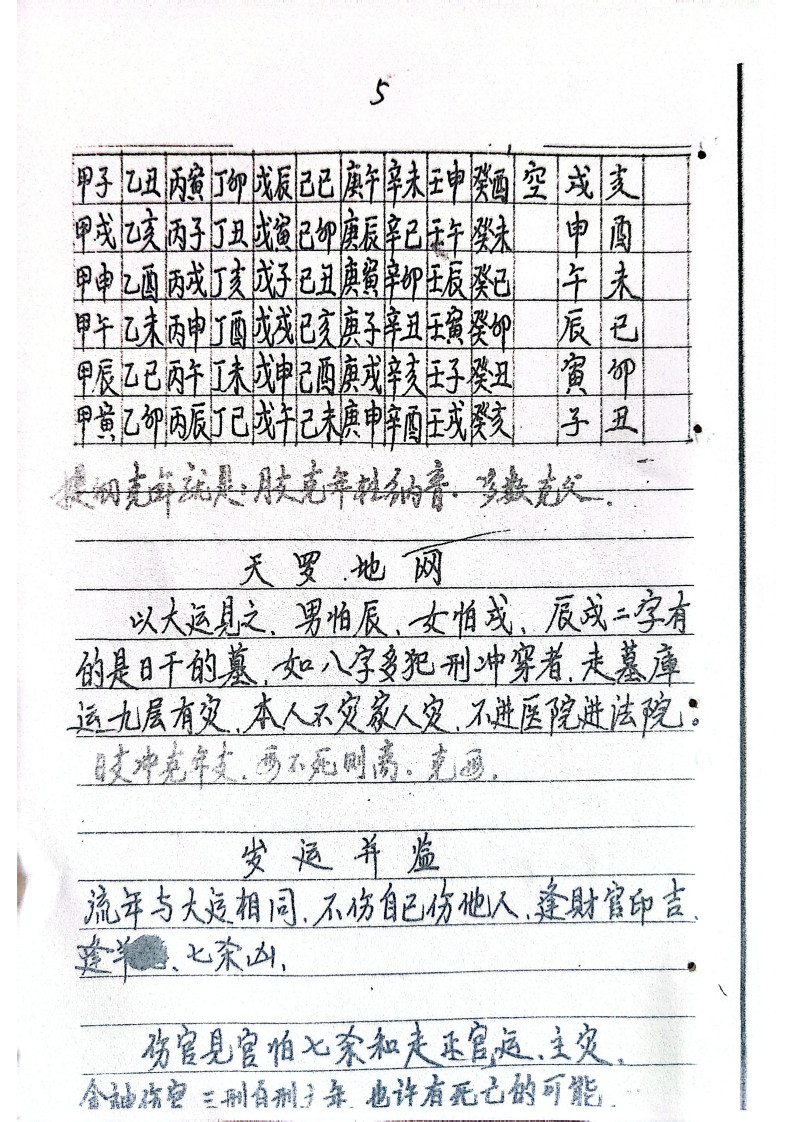 5
甲子 乙丑 丙寅 丁卯 戊辰 己巳 庚午 辛未 壬申 癸酉 空 戌 亥
甲戌 乙亥 丙子 丁丑 戊寅 己卯 庚辰 辛巳 壬午 癸未 申 酉
甲申 乙酉 丙戌 丁亥 戊子 己丑 庚寅 辛卯 壬辰 癸巳 午 未
甲午 乙未 丙申 丁酉 戊戌 己亥 庚子 辛丑 壬寅 癸卯 辰 巳
甲辰 乙巳 丙午 丁未 戊申 己酉 庚戌 辛亥 壬子 癸丑 寅 卯
甲寅 乙卯 丙辰 丁巳 戊午 己未 庚申 辛酉 壬戌 癸亥 子 丑
提纲克年就是:月支克年柱纳音.多数克父.
天罗地网
以大运见之、男怕辰、女怕戌、辰戌二字有
的是日干的墓、如八字多犯刑冲穿者、走墓庫
运九层有灾、本人不灾家人灾、不进医院进法院。
日支冲克年支、不死则离.克
岁运并监
流年与大运相同、不伤自己伤他人、逢財官印吉、
逢羊、七杀凶、
伤官见官怕七杀和走正官运、主灾、
伤官 三刑自刑 年 也许有死亡的可能